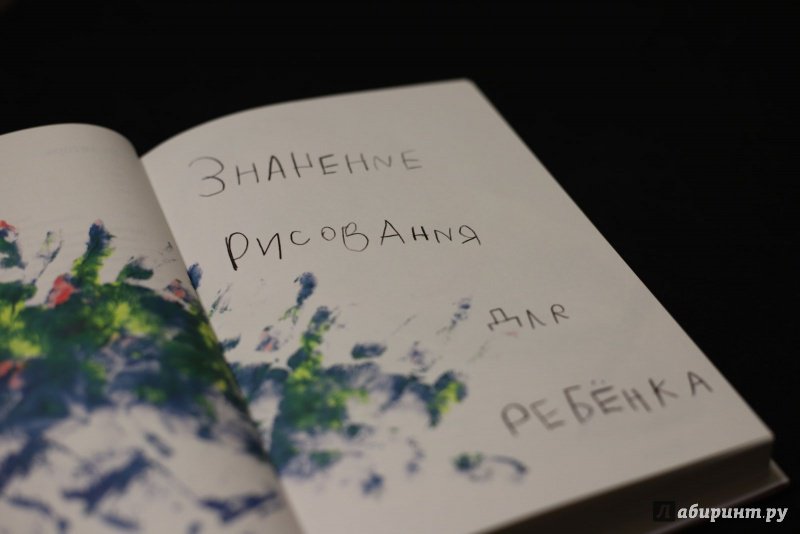 ЗНАЧЕНИЕ
РИСОВАНИЯ
ДЛЯ
РЕБЁНКА
Лабиринт.ру